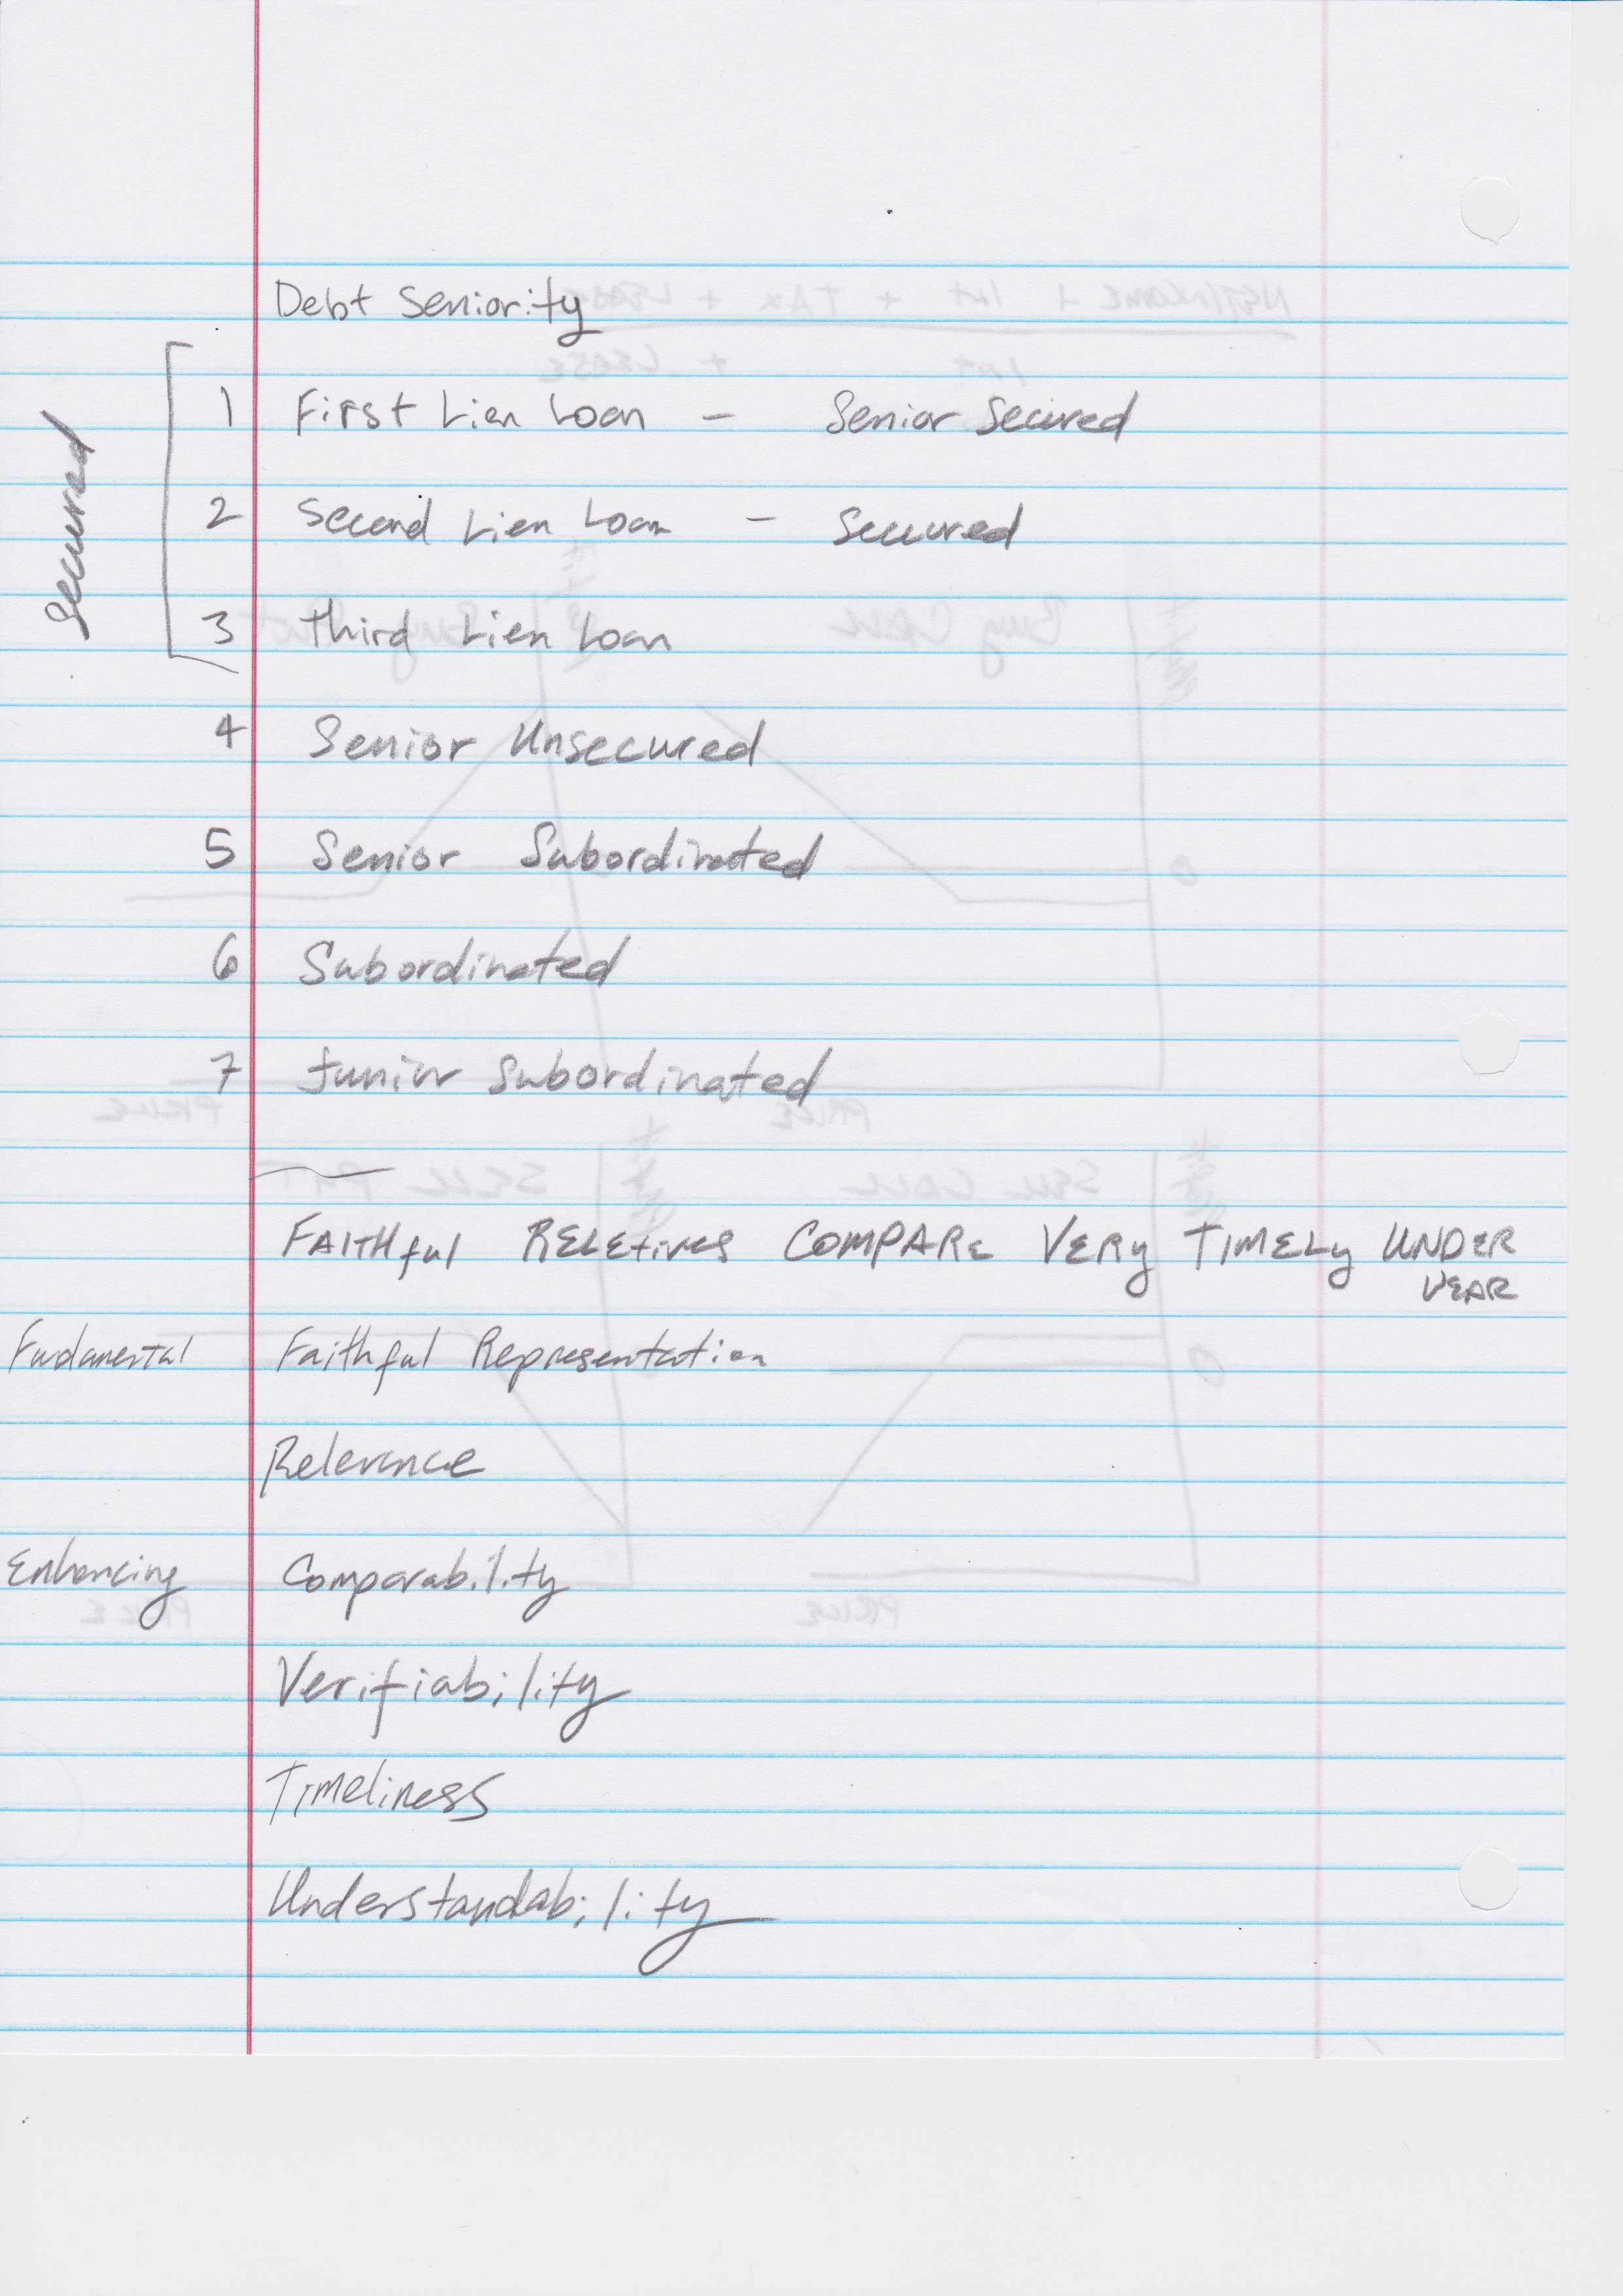 Debt Seniority
Secured
1 First Lien Loan - Senior Secured
2 Second Lien Loan - Secured
3 Third Lien Loan
4 Senior Unsecured
5 Senior Subordinated
6 Subordinated
7 Junior Subordinated
FAITHful RELETIVES COMPARE VERY TIMELY UNDER
WEAR
Fudamental Faithful Representation
Relevance
Enhancing Comparability
Verifiability
Timeliness
Understandability